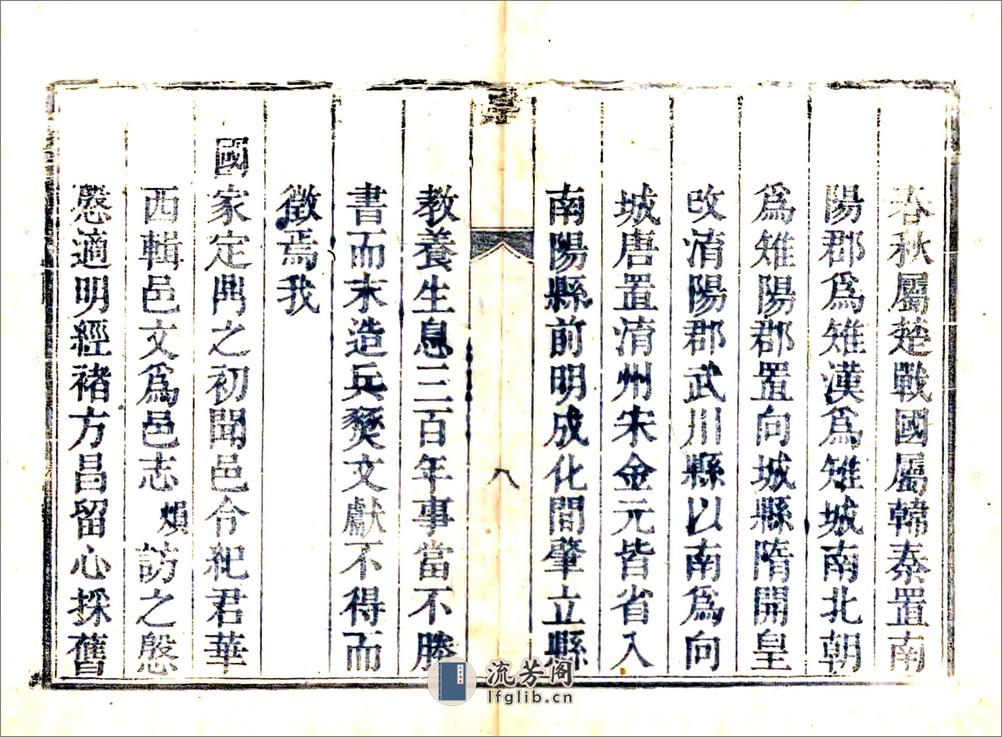 春秋屬楚戰國屬韓秦置南
陽郡爲雉漢爲雉城南北朝
爲雉陽郡置向城縣隋開皇
改淯陽郡武川縣以南爲向
城唐置淯州宋金元皆省入
南陽縣前明成化間肇立縣
序
八
教養生息三百年事當不勝
書而末造兵燹文獻不得而
徵焉我
國家定鼎之初聞邑令紀君華
西輯邑文爲邑志煩訪之慇
慇適明經褚方昌留心採舊
流芳阁
lfglib.cn